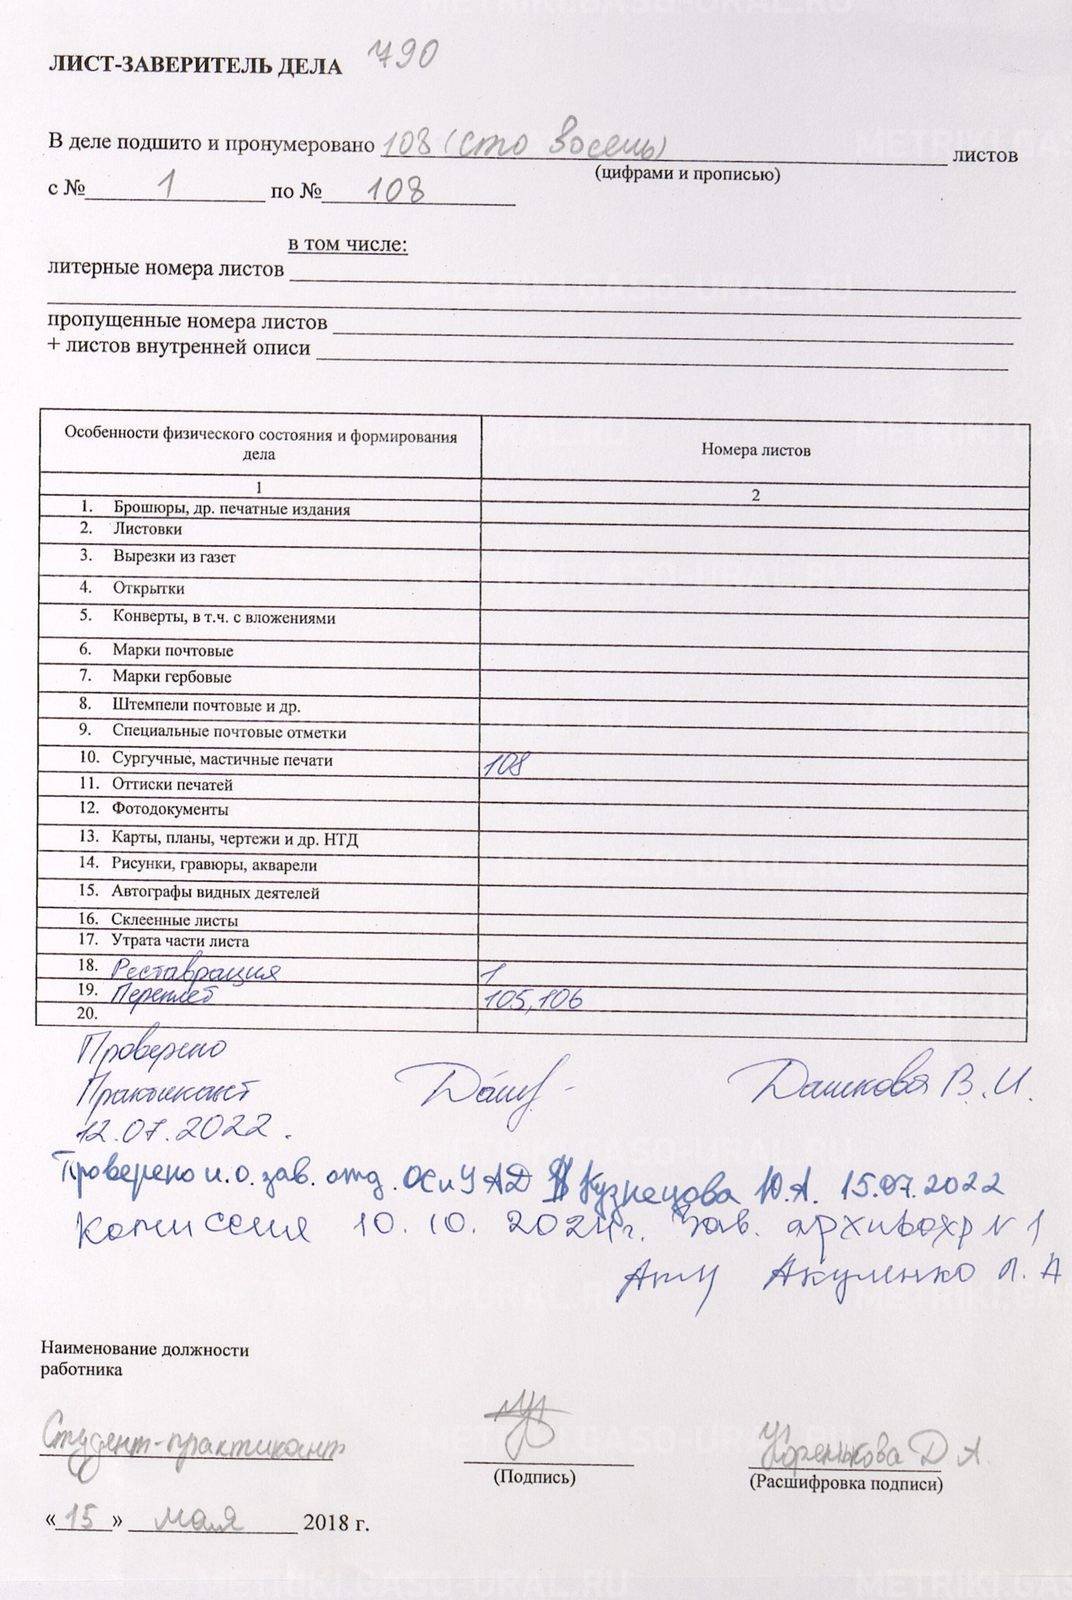 ЛИСТ-ЗАВЕРИТЕЛЬ ДЕЛА 790
В деле подшито и пронумеровано 108 (сто восемь) листов
(цифрами и прописью)
с № 1 по № 108
в том числе:
литерные номера листов
пропущенные номера листов
+ листов внутренней описи
Особенности физического состояния и формирования дела Номера листов
1 2
1. Брошюры, др. печатные издания
2. Листовки
3. Вырезки из газет
4. Открытки
5. Конверты, в т.ч. с вложениями
6. Марки почтовые
7. Марки гербовые
8. Штемпели почтовые и др.
9. Специальные почтовые отметки
10. Сургучные, мастичные печати 108
11. Оттиски печатей
12. Фотодокументы
13. Карты, планы, чертежи и др. НТД
14. Рисунки, гравюры, акварели
15. Автографы видных деятелей
16. Склеенные листы
17. Утрата части листа
18. Реставрация 1
19. Переплет 105,106
20.
Проверено
Практикант Дашкова В.И.
12.07.2022.
Проверено и.о. зав. отд. ОСиУАД Кузнецова Ю.А. 15.07.2022
Комиссия 10.10.2024г. Зав. архивохр №1
Акуленко Л.А
Наименование должности
работника
Студент-практикант Д А.
(Подпись) (Расшифровка подписи)
«15» мая 2018 г.
METRIKI.GASO-URAL.RU